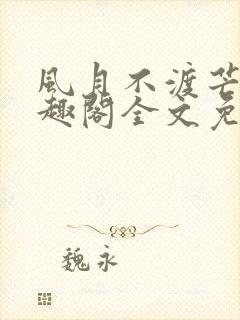 風月不渡芒
趣閣全文免
魏永